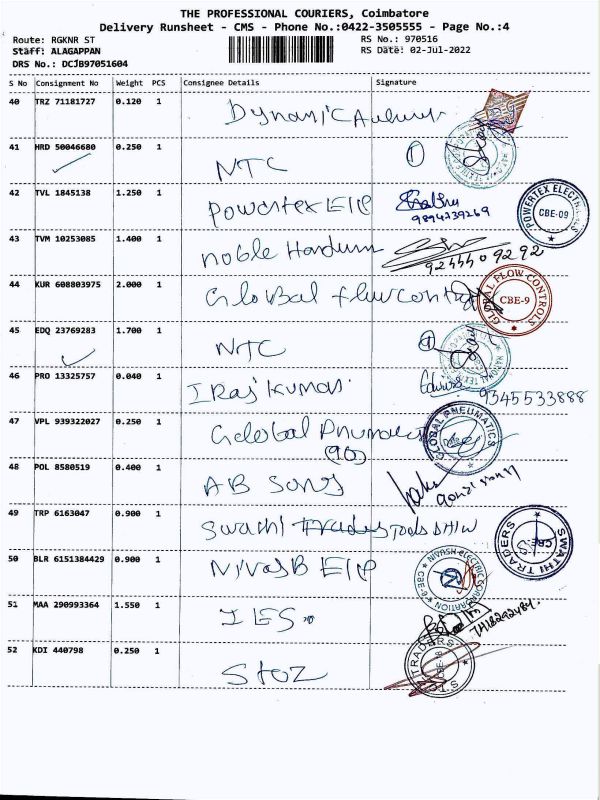 THE PROFESSIONAL COURIERS, Coimbatore
Delivery Runsheet - CMS - Phone No.:0422-3505555 - Page No.:4
Route: RGKNR ST
RS No.: 970516
Staff: ALAGAPPAN
RS Date: 02-Jul-2022
DRS No.: DCJB97051604
S No Consignment No Weight PCS Consignee Details Signature
40 TRZ 71181727 0.120 1 Dynamic
41 HRD 50046680 0.250 1 NTC 1
42 TVL 1845138 1.250 1 Powertex E11P 9894239269 POWERTEX ELECTRI CBE-09
43 TVM 10253085 1.400 1 Noble
44 KUR 608803975 2.000 1 Global flowcontrol GLOBAL FLOW CONTROLS CBE-9
45 EDQ 23769283 1.700 1 NTC 1
46 PRO 13325757 0.040 1 I Rajkumar 9345533888
47 VPL 939322027 0.250 1 Global GLOBAL PNEUMATICS
(90)
48 POL 8580519 0.400 1 AB Song
49 TRP 6163047 0.900 1 Swathi Traders Tools SWATHI TRADERS CBE
50 BLR 6151384429 0.900 1 NIYASH ELECTRIC CORPORATION CBE-6
51 MAA 290993364 1.550 1 IES
52 KDI 440798 0.250 1 Stoz TRADERS CBE-18